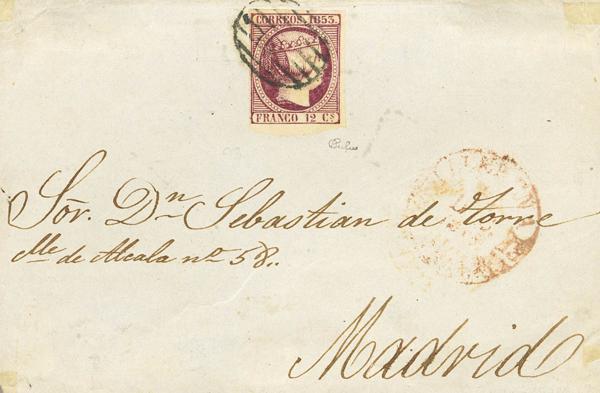 CORREOS 1853.
FRANCO 12 Cs
Sōr. Dn Sebastian de Torre
Clle de Alcala no 58..
Madrid